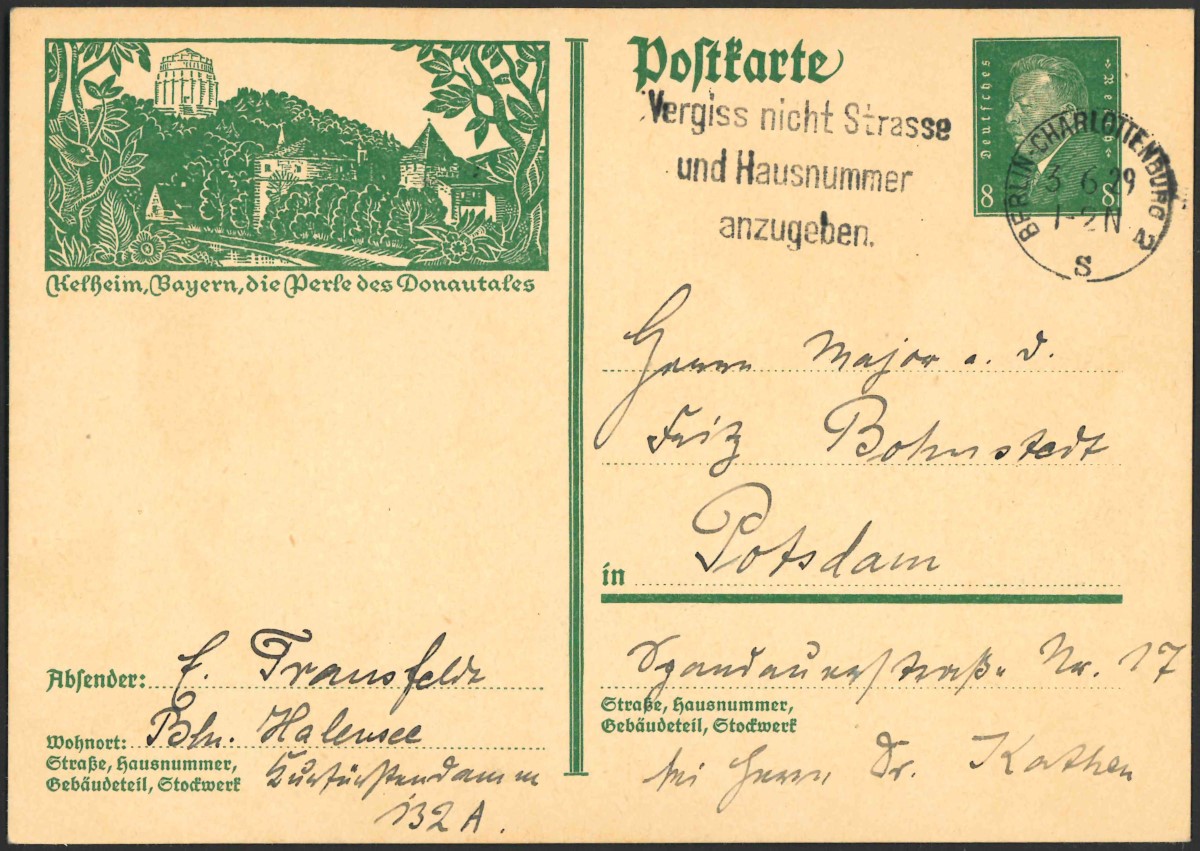 Kelheim, Bayern, die Perle des Donautales
Postkarte
Vergiss nicht Strasse
und Hausnummer
anzugeben.
Deutsches
Reich
8 8
BERLIN-CHARLOTTENBURG 2
3.6.29
1-2N
S
Herrn Major a. D.
Fritz Bohnstedt
in Potsdam
Spandauerstraße Nr. 17
Straße, Hausnummer,
Gebäudeteil, Stockwerk
bei Herrn Dr. Kathen
Absender: E. Transfeldt
Wohnort: Bln. Halensee
Straße, Hausnummer,
Gebäudeteil, Stockwerk
Kurfürstendamm
132 A.